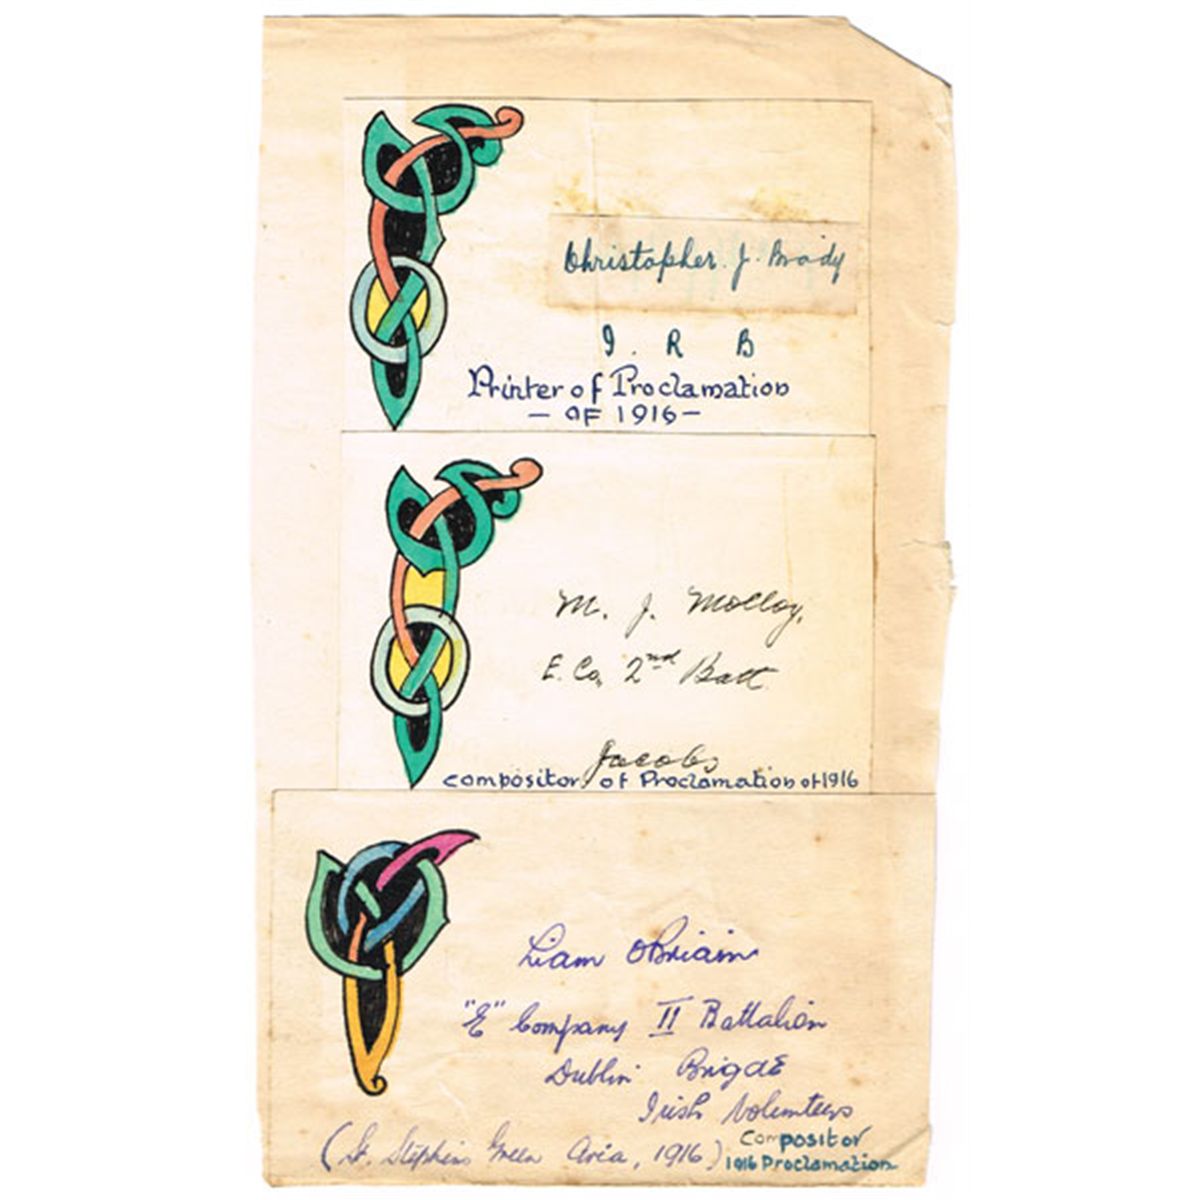 Christopher. J. Brady
I. R B
Printer of Proclamation
- OF 1916 -
M. J. Molloy,
E. Co, 2nd Batt.
Jacobs
compositor of Proclamation of 1916
Liam OBriain
"E" Company II Battalion
Dublin Brigde
Irish Volunteers
(St. Stephins Green Aria, 1916)
Compositor
1916 Proclamation